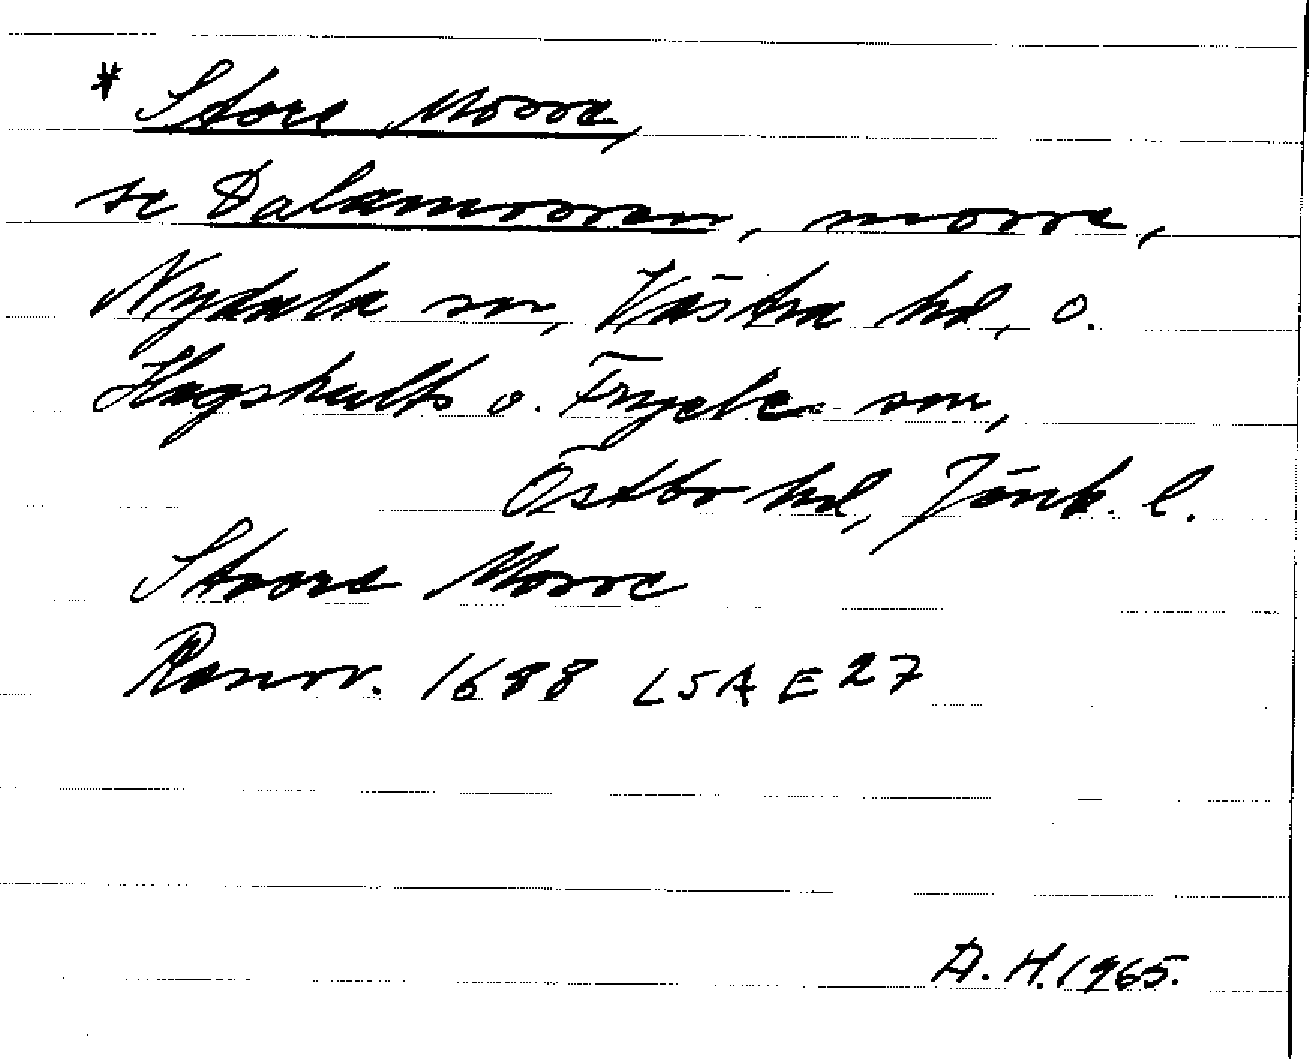 * Store Mosse,
se Dalamossen, mosse,
Nydala sn, Västra hd, o.
Hagshults o. Fryele snr,
Östbo hd, Jönk. l.
Stoore Mosse
Ransv. 1688 LSA E 27
A. H. 1965.